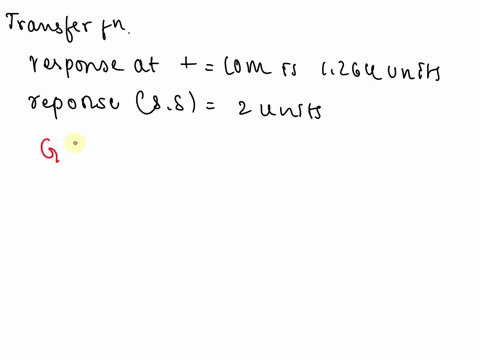 Transfer fn.
response at t = 10m is 1.264 units
reponse (s.s) = 2 units
G